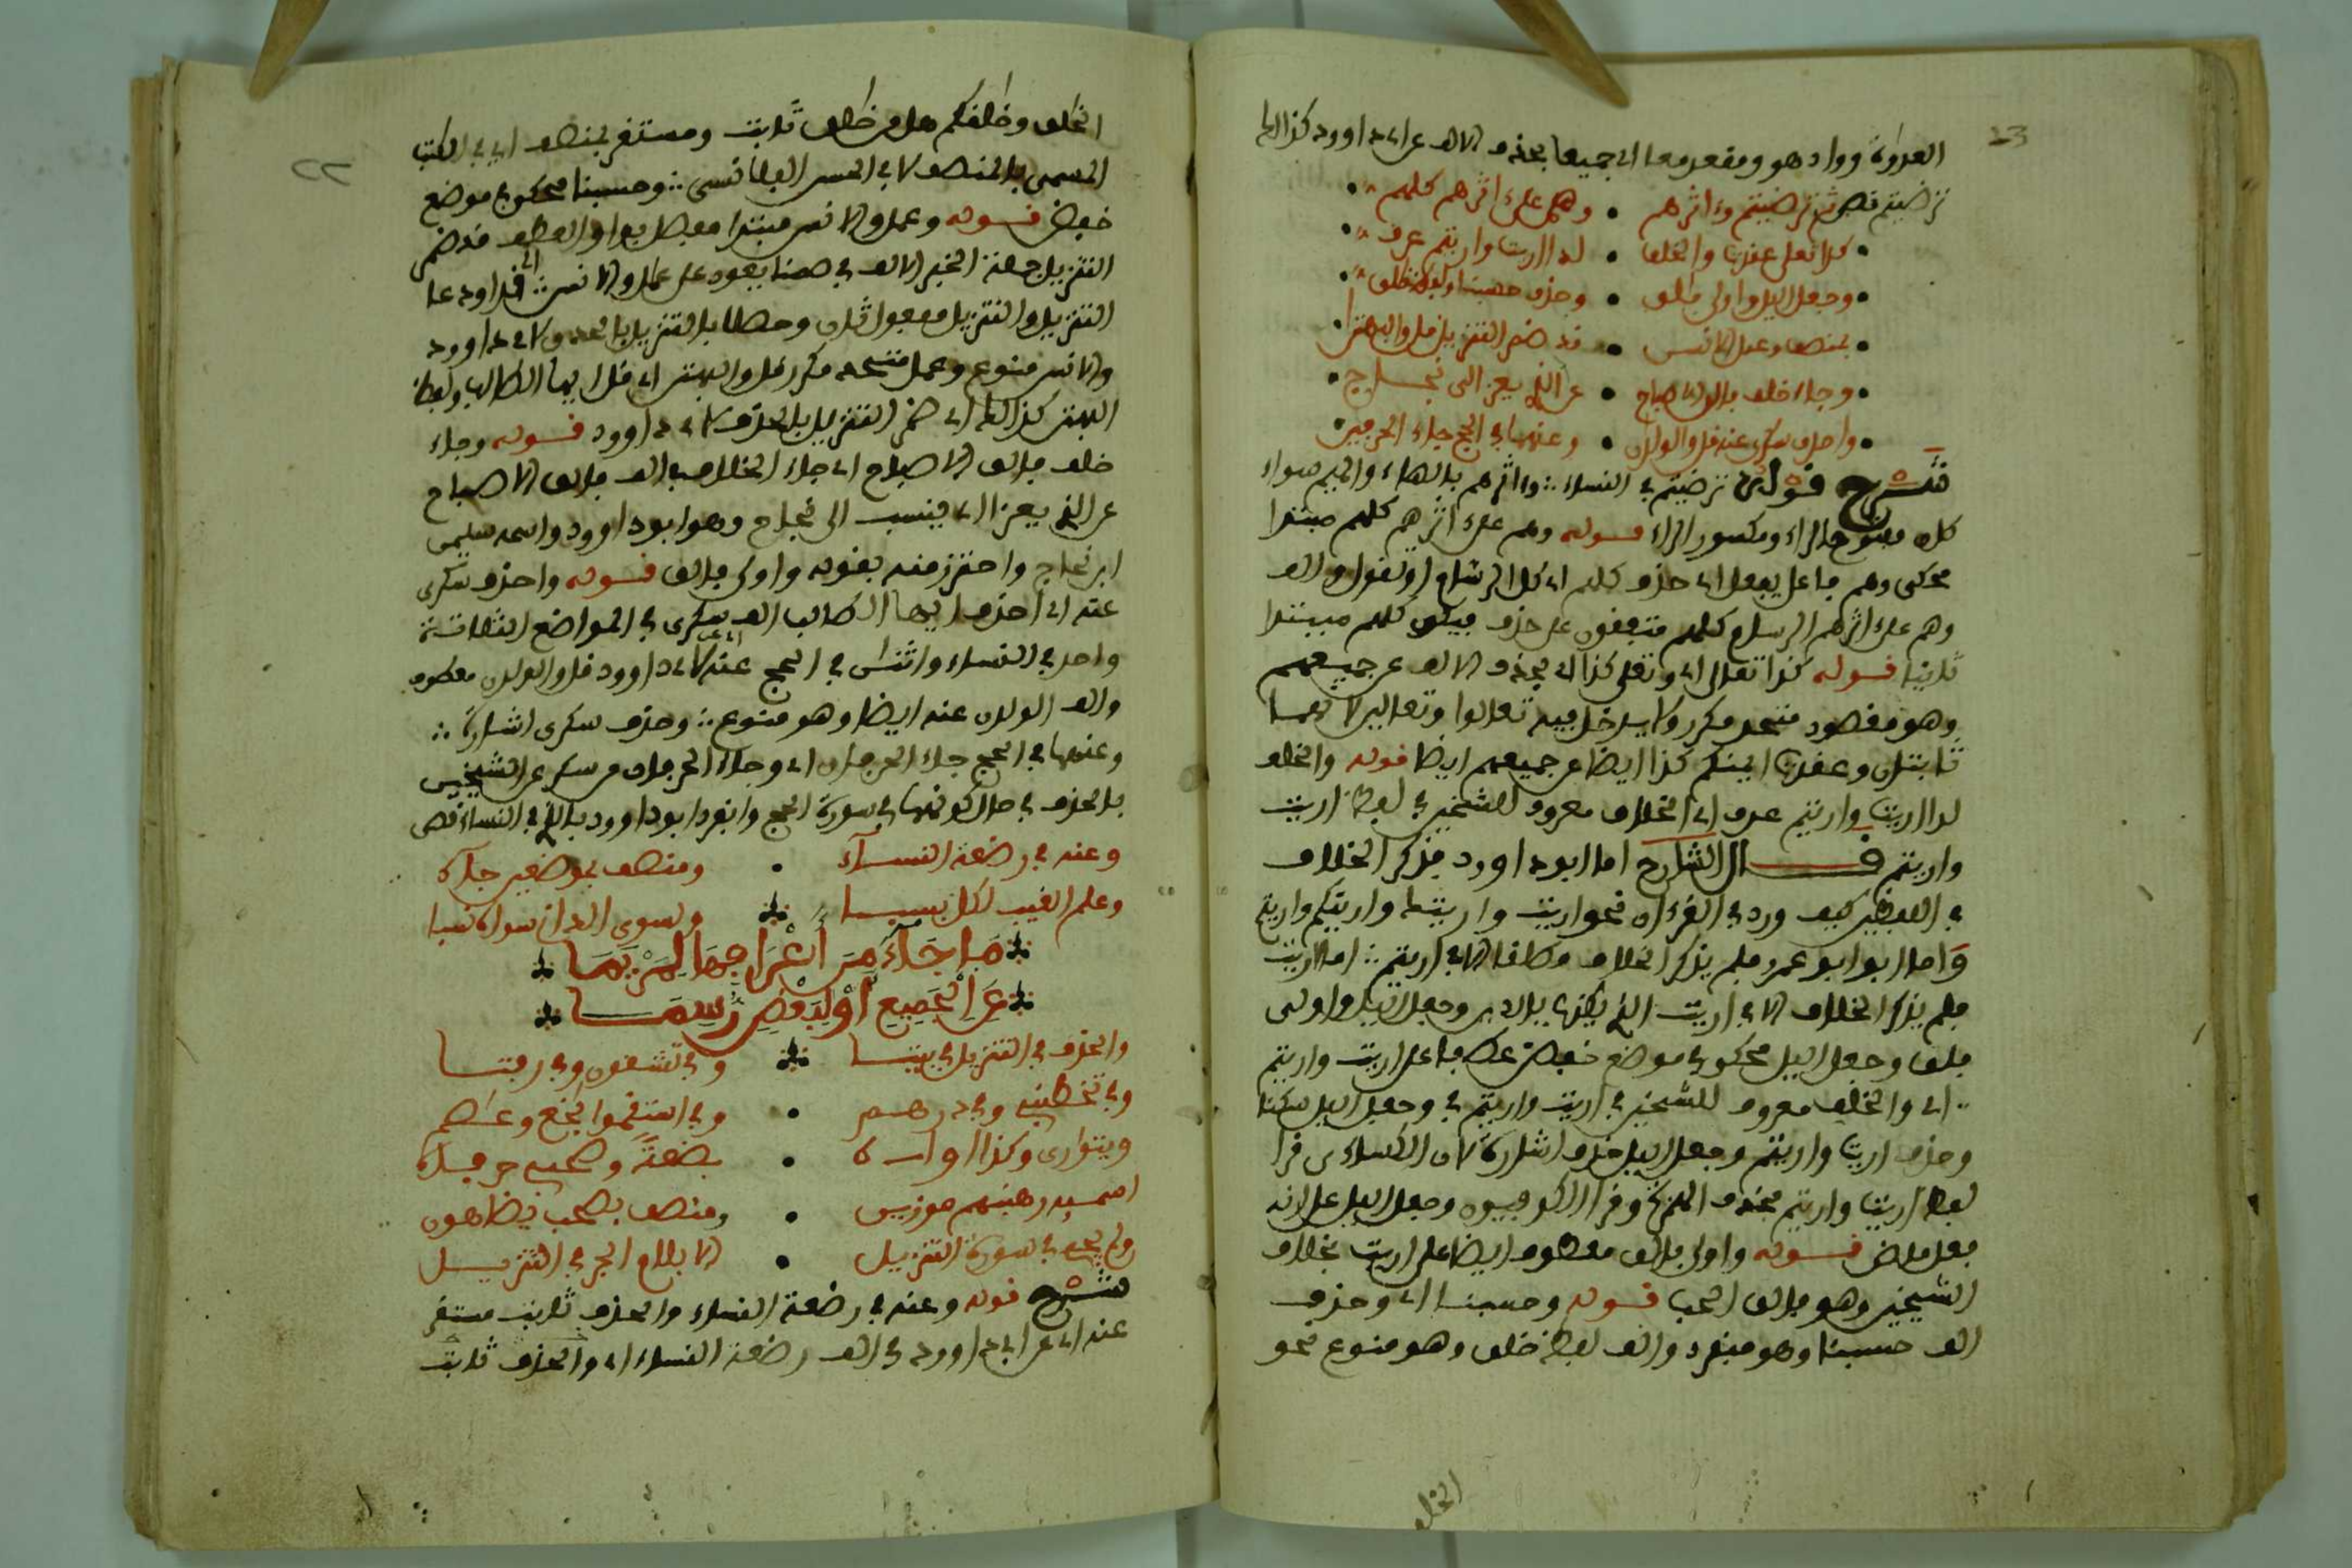 العداوة وواد هو ومقعد معا اي جميعا بحذف الالف عن ابي داوود كذا الى
ترضيتم قص ثم ترضيتم وءاثرهم • وهم على ءاثرهم كلهم
كذا تعلى عقدت والخلف • لدا اريت واريتم عرف
وجعل اليل واولى فالق • وحذف حسبنا ولفظ خلق
بمنصف وعمل الانس • قد ضم التنزيل قل والبهتن
وجاء خلف فالق الاصباح • عن الذي يعزى الى نجاح
واحذف سكرى عنه قل والولدن • وعنهما في الحج جاء الحرفين
شرح قوله ترضيتم في النساء وءاثرهم بالهاء والميم سواء
كان مفتوح الراء ومكسور الراء قوله وهم على ءاثرهم كلهم مبتدا
محكى وهم فاعل بفعل اي حذف كلهم اي كل الرسام او تقول والف
وهم على ءاثرهم الرسام كلهم متفقون على حذف فيكون كلهم مبتدا
ثانيا قوله كذا تعالى اي وتعلى كذا اي بحذف الالف عن جميعهم
وهو مقصود متحد مكرر ولا يدخل فيه تعالوا وتعالين لانهما
ثابتان وعقدت ايمنكم كذا ايضا عن جميعهم ايضا قوله والخلف
لدا اريت واريتم عرف اي الخلاف معروف للشيخين في لفظ اريت
واريتم قال الشارح اما ابو داوود فذكر الخلاف
في اللفظين كيف ورد في القرءان نحو اريت واريتك واريتكم واريتم
واما ابو عمرو فلم يذكر الخلاف مطلقا الا في اريتم اما اريت
فلم يذكر الخلاف الا في اريت الذي يكذب بالدين وجعل اليل واولى
فلق وجعل اليل محكى في موضع خفض عطف على اريت واريتم
اي والخلف معروف للشيخين في اريت واريتم في وجعل اليل سكنا
وحذف اريت واريتم وجعل اليل خلف اشارة لان الكساءي قرا
لفظ اريت واريتم بحذف الهمزة وقرا الكوفيون وجعل اليل على انه
فعل ماض قوله واولى فالق معطوف ايضا على اريت بخلاف
الشيخين وهو فالق الحب قوله وحسبنا اي وحذف
الف حسبنا وهو منفرد والف لفظ خلق وهو منوع نحو
الخل
الخلق وخلقكم هل من خلق ثابت ومستقر بمنصف اي في الكتب
المسمى بالمنصف لابي الحسن البلنسي وحسبنا محكى في موضع
خفض قوله وعمل والانس مبتدا معطل بواو العطف قد ضم
التنزيل جملة الخبر الالف في ضمنا يعود على عمل والانس اي قد اودعا
التنزيل والتنزيل مفعول ثان وخطا بالتنزيل بالحذف لابي داوود
والانس منوع وعمل متحد مكرر قل والبهتن اي قل ايها الطالب ولفظ
البهتن كذا اي ضم التنزيل بالحذف لابي داوود قوله وجاء
خلف فالق الاصباح اي جاء الخلاف في الف فالق الاصباح
عن الذي يعزا اي ينسب الى نجاح وهو ابو داوود واسمه سليمن
ابن نجاح واحترز منه بقوله واولى فالق قوله واحذف سكرى
عنه اي احذف ايها الطالب الف سكرى في المواضع الثلاثة
واحد في النساء واثنان في الحج عنه اي عن لابي داوود قل والولدن معطوف
والف الولدن عنه ايضا وهو منوع وحذف سكرى اشارة
وعنهما في الحج جاء الحرفان اي وجاء الحرفان من سكرى عن الشيخين
بالحذف في حال كونهما في سورة الحج وانفرد ابو داوود بالذي في النساء قص
وعنه في رضعة النساء • ومنصف بموضعين جاء
وعلم الغيب لكل بسبا • ولسوى الدان سواه نسبا
ما جاء من اعرافها لمريما
عن الجميع او لبعض رسما
والحذف في التنزيل في بيتا • وفي تشقون وفي رفتا
وفي تخطبني وفي درهم • وفي استقموا بخع وعصم
ويتوارى وكذا اواره • بضعة وصحبي حرفاه
اسميه رهبنهم موزين • ومنصف بصحب يضاهون
ولم يجئ في سورة التنزيل • الا بلام الجر في التنزيل
شرح قوله وعنه في رضعة النساء والحذف ثابت مستقر
عنه اي عن ابي داوود في الف رضعة النساء اي والحذف ثابت
٢٢